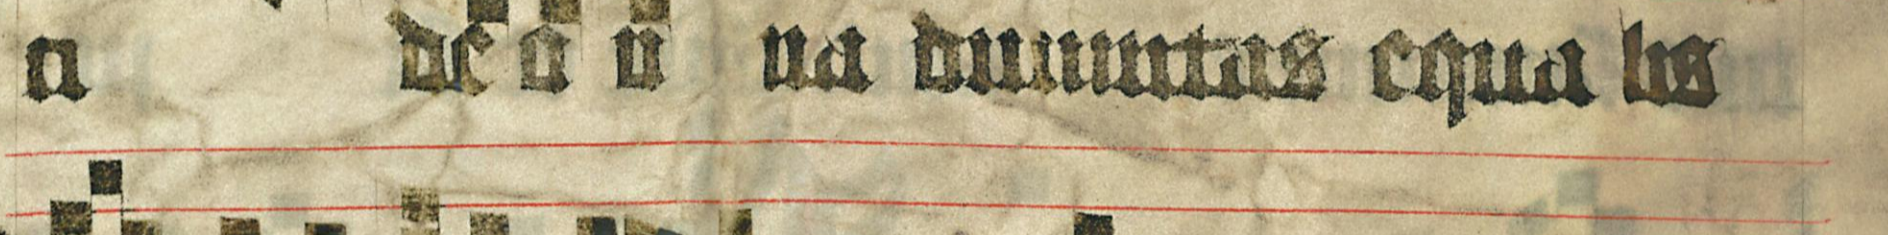 a de o u na diuinitas equa lis